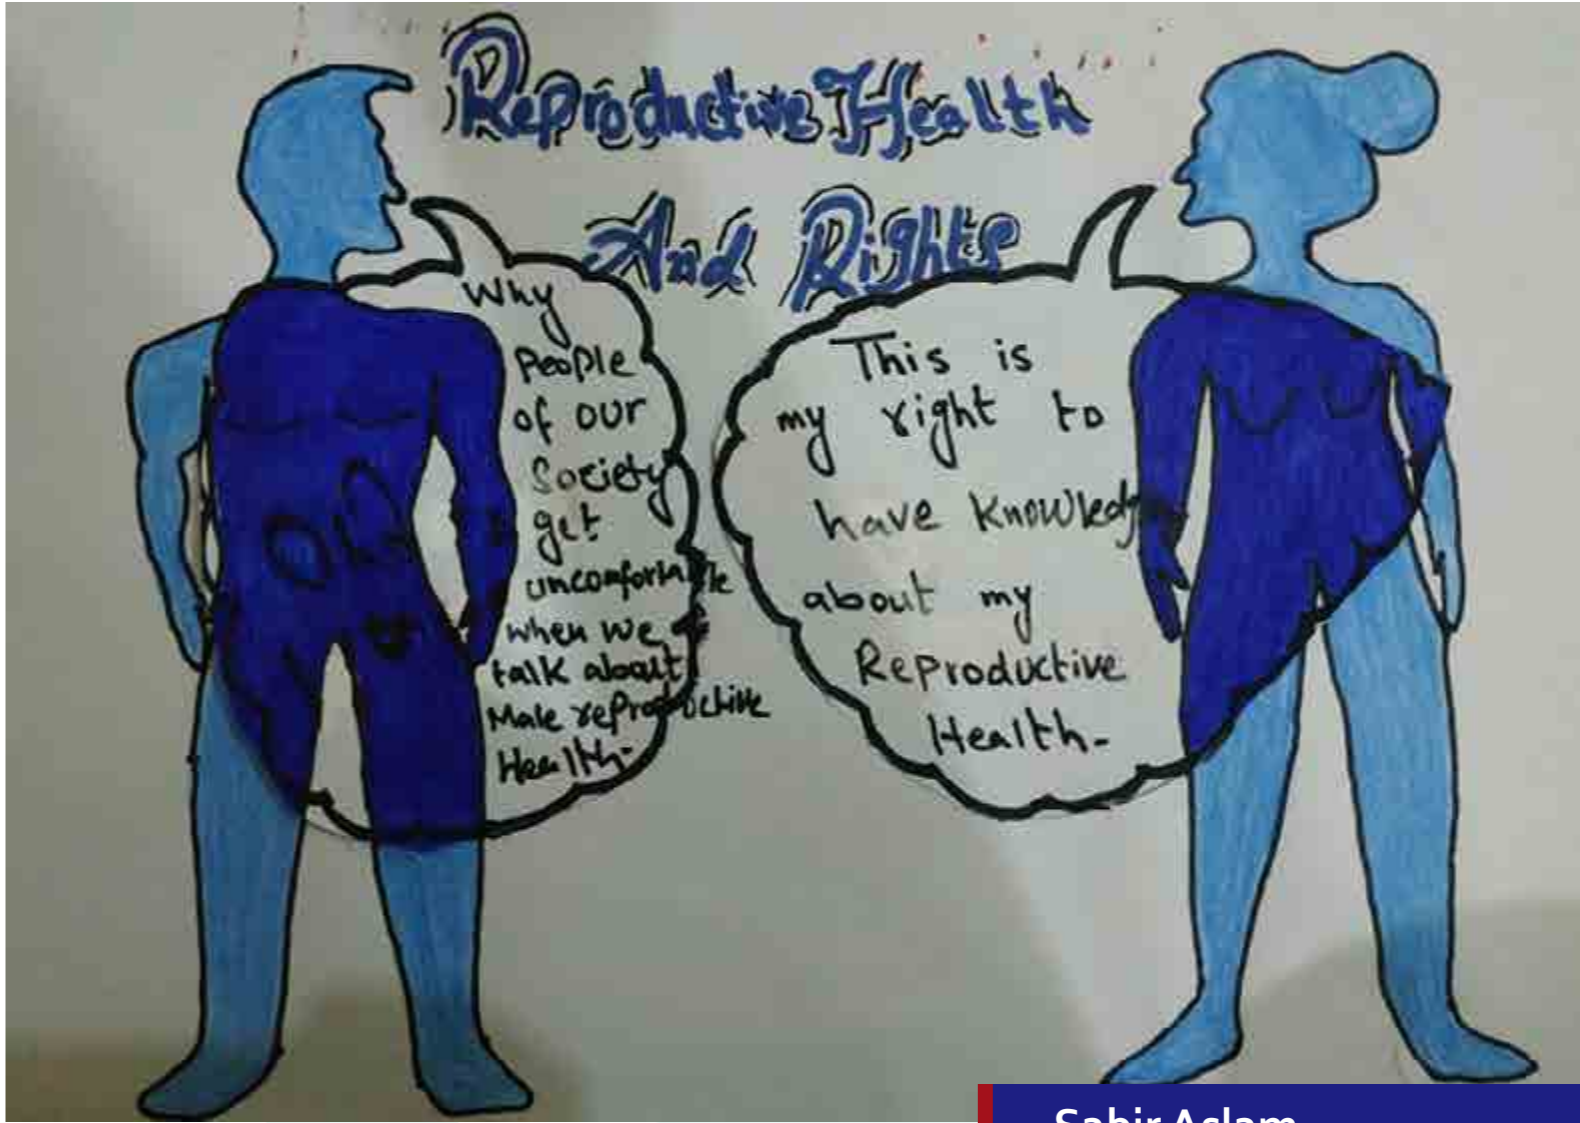 Reproductive Health
And Rights
Why
People
of our
Society
get
uncomfortable
when we
talk about
Male reproductive
Health.
This is
my right to
have knowledge
about my
Reproductive
Health.
Sabir Aslam